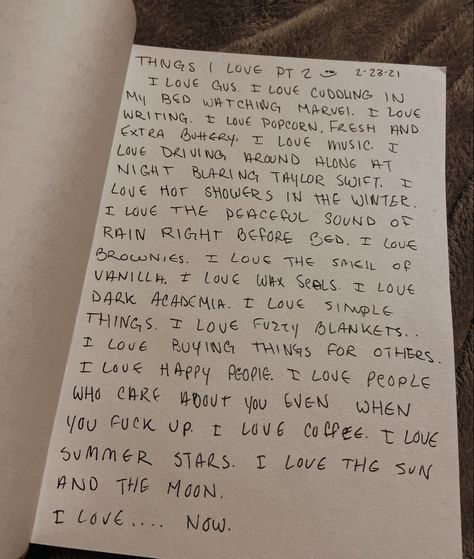 THNGS I LOVE PT 2 ☺ 2-23-21
I LOVE GUS. I LOVE CUDDLING IN
MY BED WATCHING MARVEL. I LOVE
WRITING. I LOVE POPCORN, FRESH AND
EXTRA BUTTERY. I LOVE MUSIC. I
LOVE DRIVING AROUND ALONE AT
NIGHT BLARING TAYLOR SWIFT. I
LOVE HOT SHOWERS IN THE WINTER.
I LOVE THE PEACEFUL SOUND OF
RAIN RIGHT BEFORE BED. I LOVE
BROWNIES. I LOVE THE SMELL OF
VANILLA. I LOVE WAX SEALS. I LOVE
DARK ACADEMIA. I LOVE SIMPLE
THINGS. I LOVE FUZZY BLANKETS..
I LOVE BUYING THINGS FOR OTHERS.
I LOVE HAPPY PEOPLE. I LOVE PEOPLE
WHO CARE ABOUT YOU EVEN WHEN
YOU FUCK UP. I LOVE COFFEE. I LOVE
SUMMER STARS. I LOVE THE SUN
AND THE MOON.
I LOVE.... NOW.